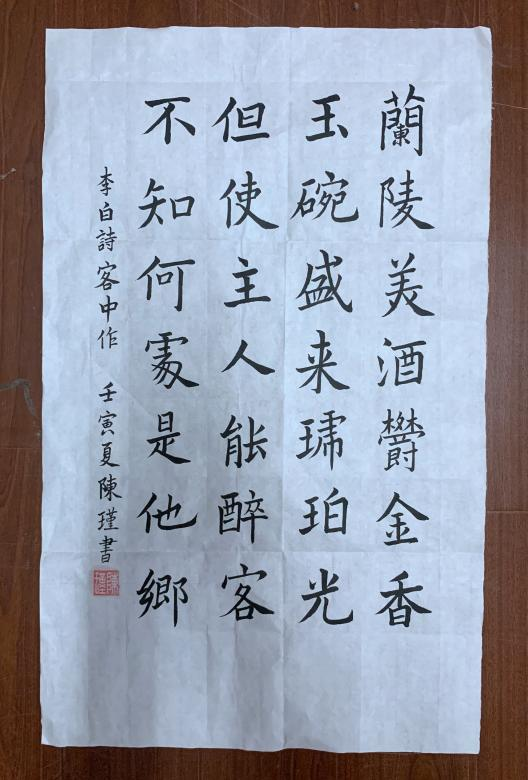 蘭陵美酒欝金香
玉碗盛来琥珀光
但使主人能醉客
不知何處是他鄉
李白詩客中作 壬寅夏陳瑾書
陳瑾